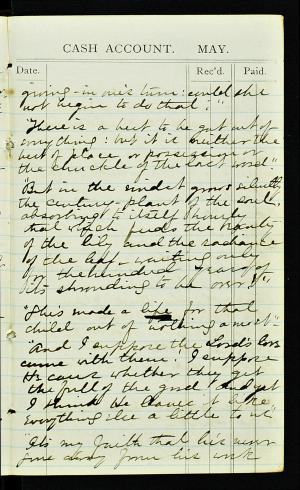 CASH ACCOUNT. MAY.
Date. Rec'd. Paid.
giving-in one's turn: could she
not begin to do that?"
"There is a best to be got out of
everything: but it is neither the
best of place or possession or
the chuckle of the last word"
"But in the mind grows silently
the century-plant of the soul,
absorbing to itself hourly
that which feeds the beauty
of the lily and the radiance
of the leaf—waiting only
for the hundred years of
its shrouding to be over!"
"She's made a life for that
child out of nothing almost"
"And I suppose the Lord's love
came with them! I suppose
He cares whether they get
the full of the good. And yet
I think He leaves it like
everything else a little to us"
"It's my faith that he's never
gone away from his work